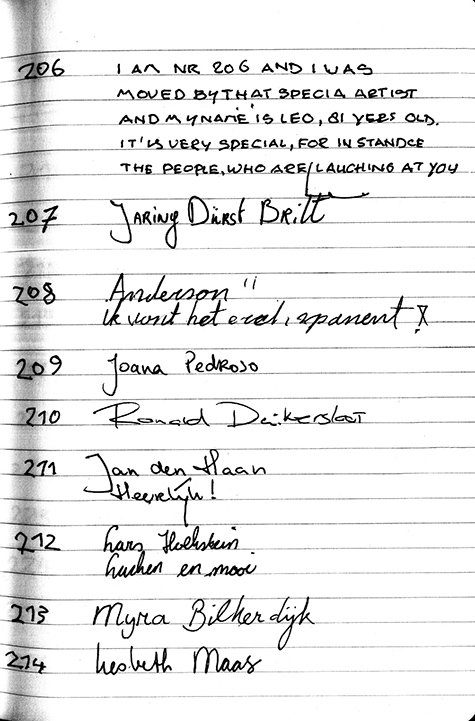 206 I AM NR 206 AND I WAS
MOVED BY THAT SPECIA ARTIST
AND MY NAME IS LEO, 81 YERS OLD.
IT'IS VERY SPECIAL, FOR IN STANDCE
THE PEOPLE, WHO ARE LAUCHING AT YOU
207 JARING DÜRST BRITT
208 Anderson
ik vont het
209 Joana PEDROSO
210 Ronald Duikersloot
211 Jan den Haan
Heerelijk!
212 Lars Holtstein
Lachen en mooi
213 Myra Bilkerdijk
214 Liesbeth Maas